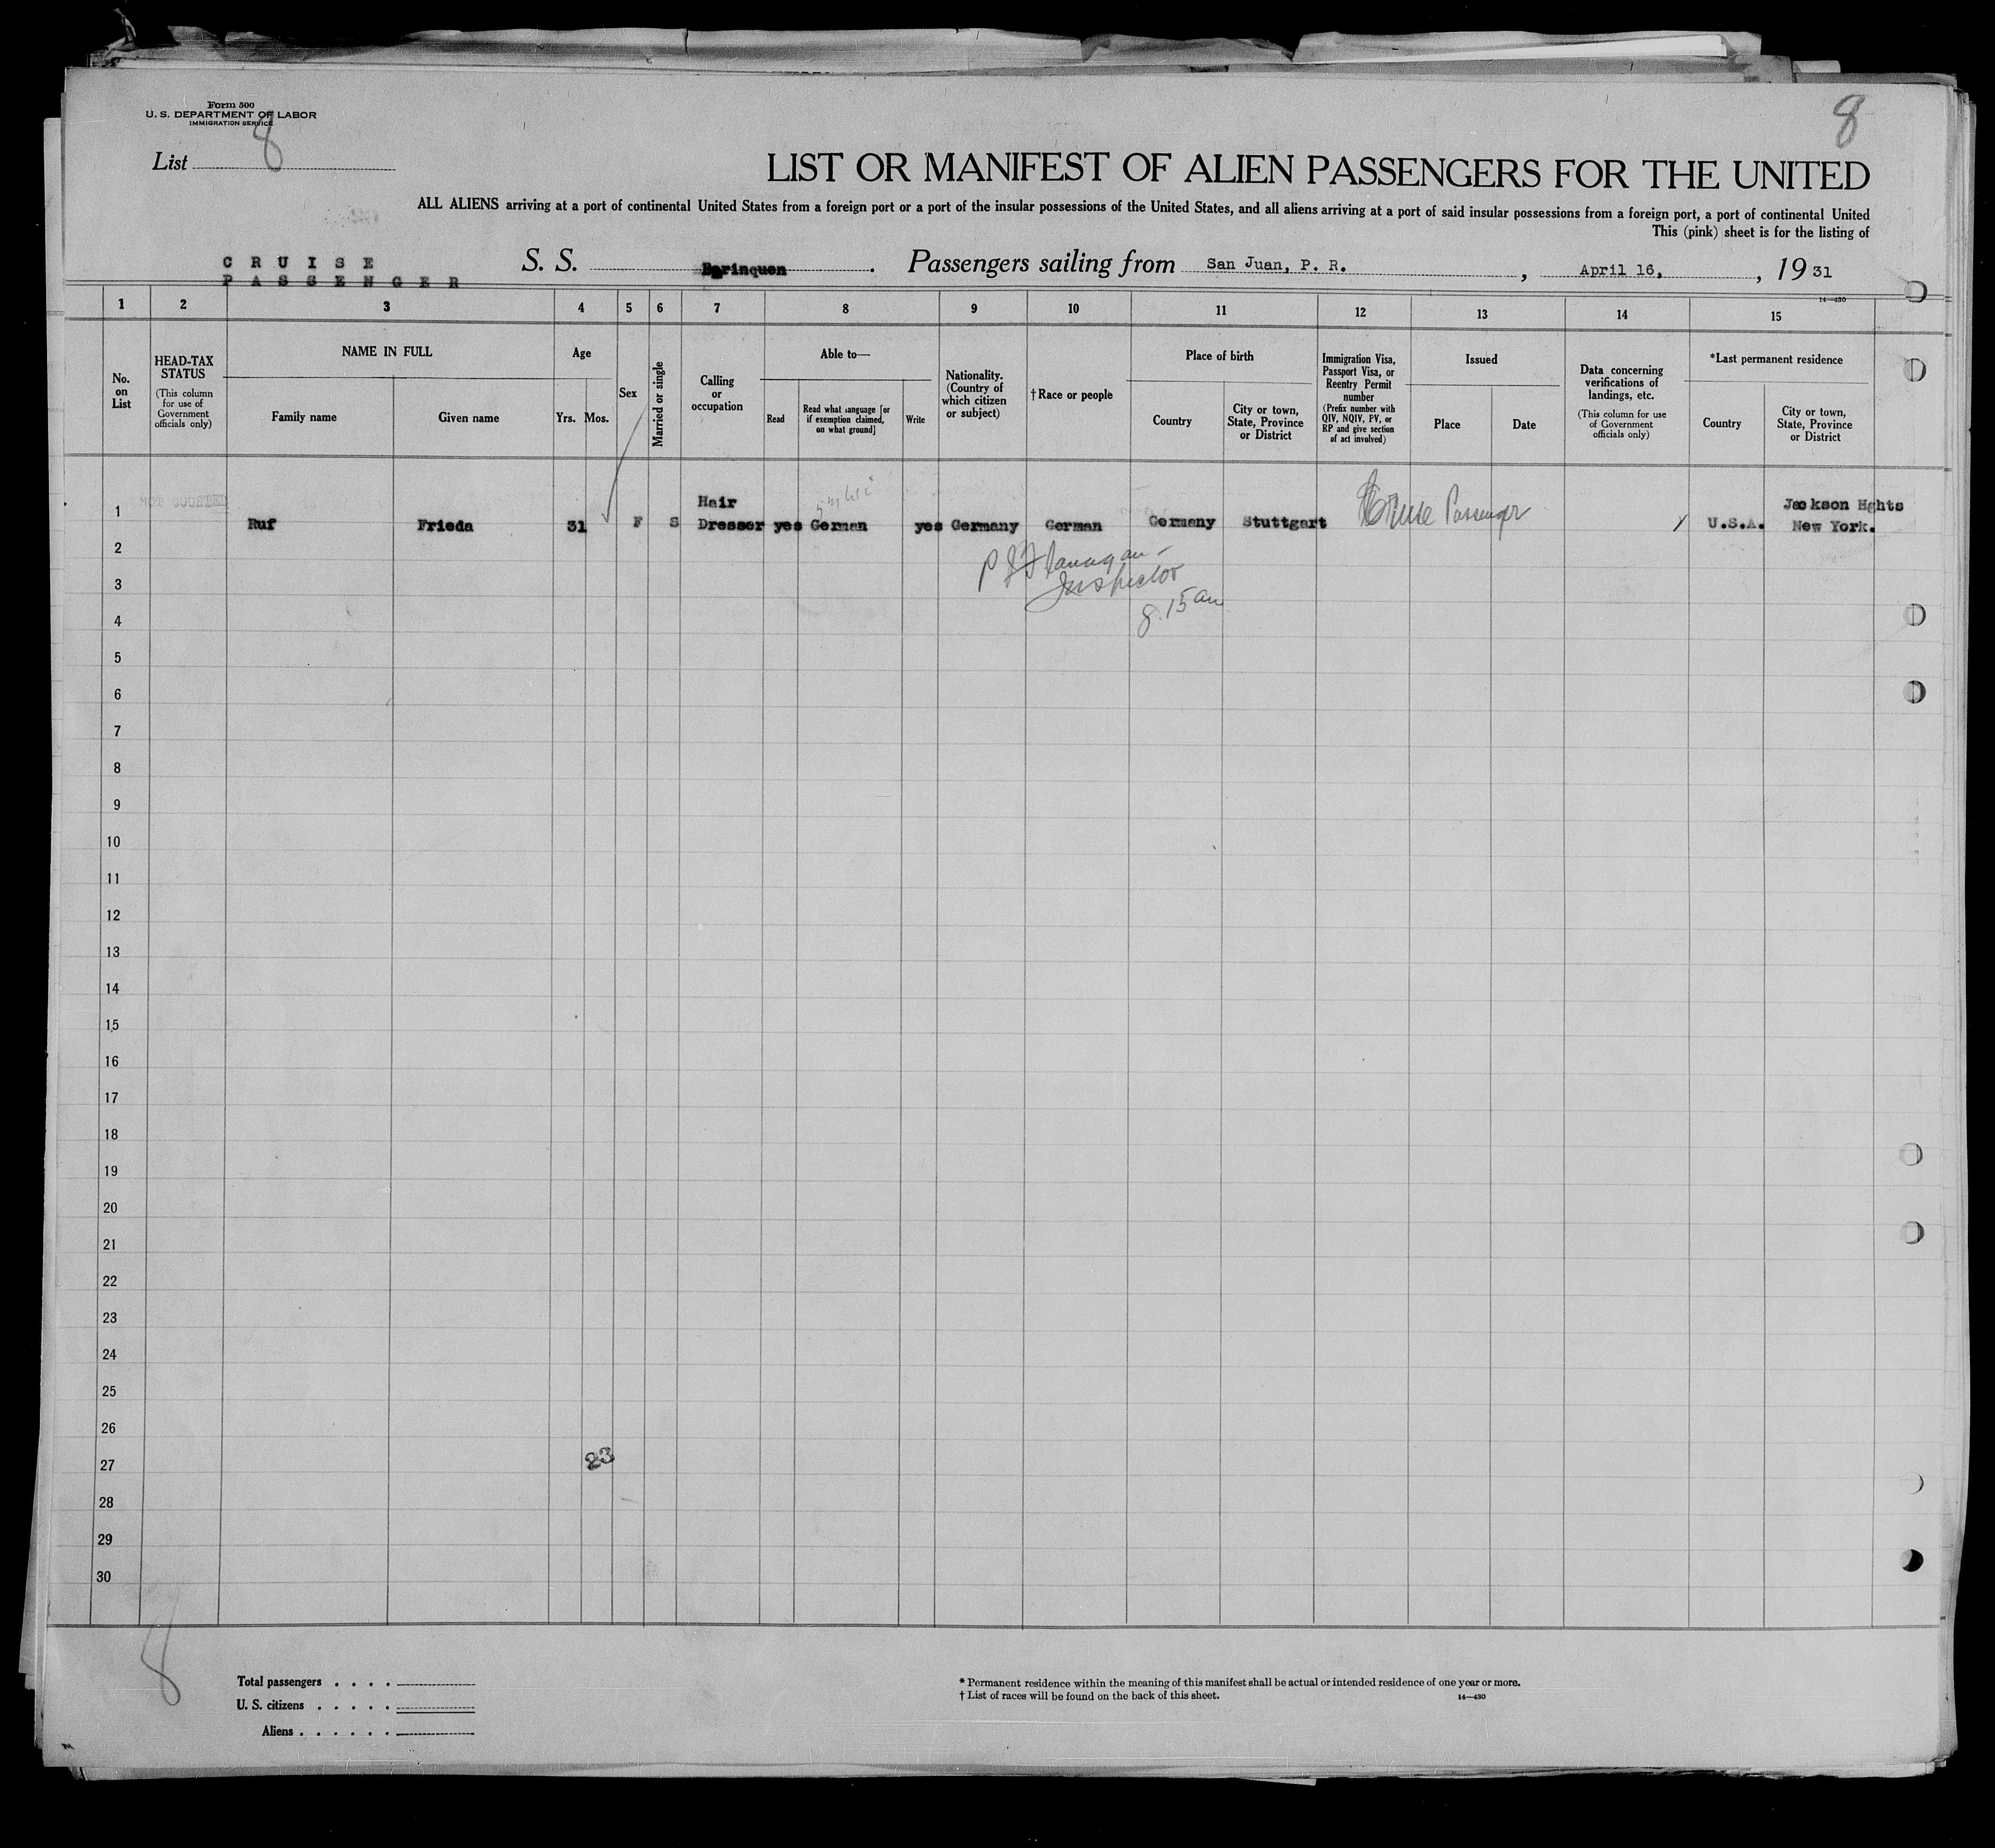 Form 500
U. S. DEPARTMENT OF LABOR
IMMIGRATION SERVICE
8
List 8
LIST OR MANIFEST OF ALIEN PASSENGERS FOR THE UNITED
ALL ALIENS arriving at a port of continental United States from a foreign port or a port of the insular possessions of the United States, and all aliens arriving at a port of said insular possessions from a foreign port, a port of continental United
This (pink) sheet is for the listing of
CRUISE
PASSENGER
S. S. Borinquen. Passengers sailing from San Juan, P. R., April 16, , 19 31
14—430
1 2 3 4 5 6 7 8 9 10 11 12 13 14 15
No. on List
HEAD-TAX STATUS
(This column for use of Government officials only)
NAME IN FULL
Family name
Given name
Age
Yrs. Mos.
Sex
Married or single
Calling or occupation
Able to—
Read
Read what language [or if exemption claimed, on what ground]
Write
Nationality. (Country of which citizen or subject)
†Race or people
Place of birth
Country
City or town, State, Province or District
Immigration Visa, Passport Visa, or Reentry Permit number
(Prefix number with QIV, NQIV, PV, or RP and give section of act involved)
Issued
Place
Date
Data concerning verifications of landings, etc.
(This column for use of Government officials only)
*Last permanent residence
Country
City or town, State, Province or District
NOT COUNTED
1 Ruf Frieda 31 F S Hair Dresser yes German yes Germany German Germany Stuttgart Cruise Passenger U.S.A. Jackson Hghts New York.
P J Flanagan -
Inspector
8.15 am
2
3
4
5
6
7
8
9
10
11
12
13
14
15
16
17
18
19
20
21
22
23
24
25
26
27
23
28
29
30
8
Total passengers . . . .
U. S. citizens . . . . .
Aliens . . . . . .
* Permanent residence within the meaning of this manifest shall be actual or intended residence of one year or more.
† List of races will be found on the back of this sheet.
14—430